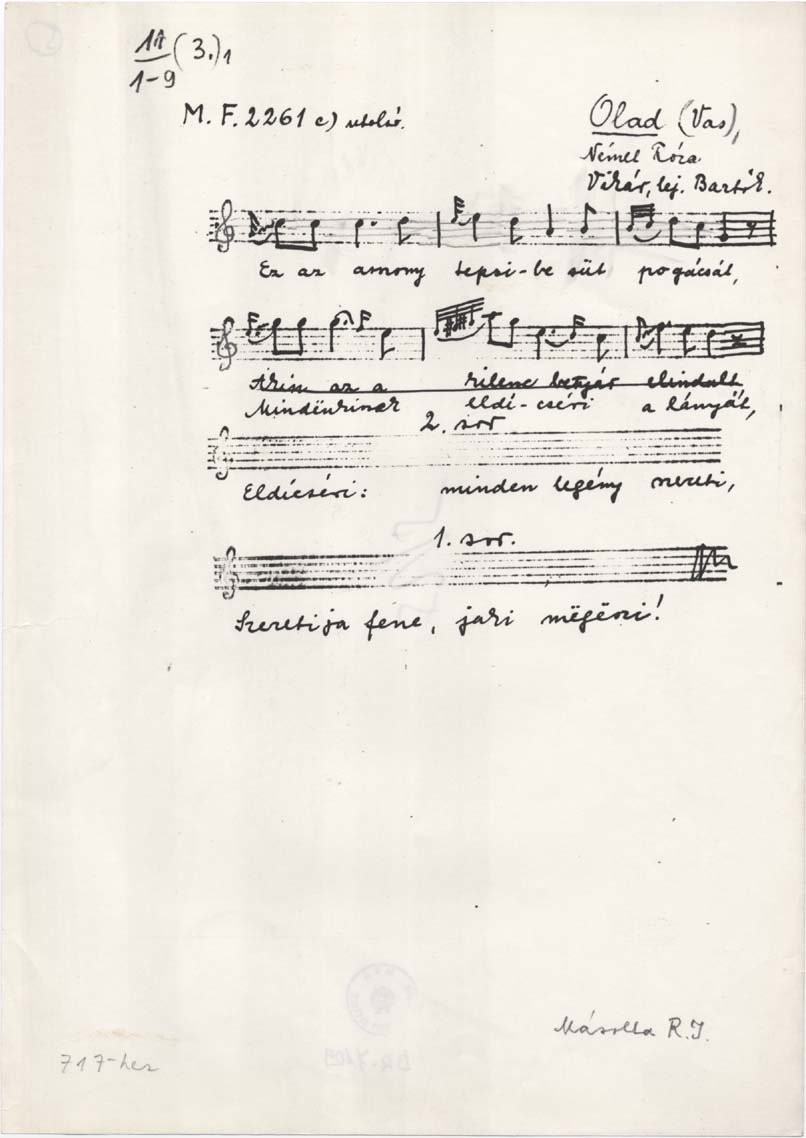 1A (3.)1
1-9
M. F. 2261 c) utolsó.
Olad (Vas),
Német Róza
Vikár, lej. Bartók.
Ez az asszony tepsi-be süt pogácsát,
az a kilenc betyár elindult
Mindënkinek eldí-cséri a lányát,
2. sor
Eldícséri: minden legény szereti,
1. sor.
Szereti ja fene, jaki mëgëszi!
Másolta R.I.
717-hez